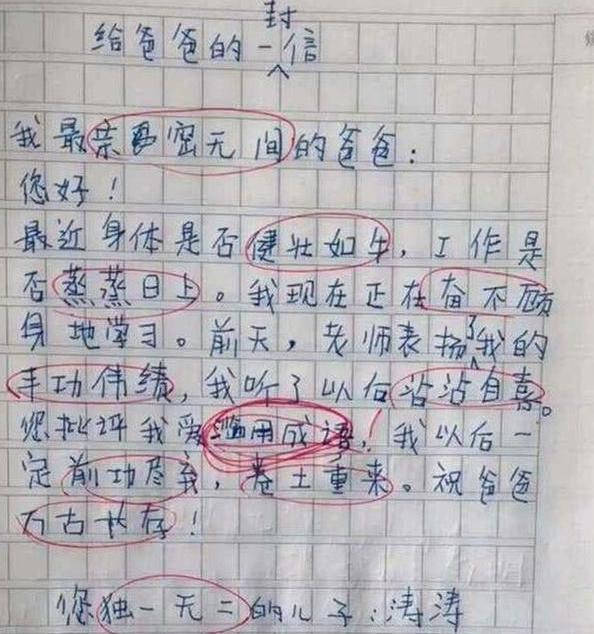 给爸爸的一封信
我最亲密无间的爸爸：
您好！
最近身体是否健壮如牛，工作是
否蒸蒸日上。我现在正在奋不顾
身地学习。前天，老师表扬了我的
丰功伟绩，我听了以后沾沾自喜。
您批评我爱滥用成语，我以后一
定前功尽弃，卷土重来。祝爸爸
万古长存！
您独一无二的儿子：涛涛